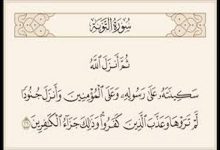 سُورَةُ التَّوْبَةِ
ثُمَّ أَنزَلَ اللَّهُ
سَكِينَتَهُۥ عَلَىٰ رَسُولِهِۦ وَعَلَى الْمُؤْمِنِينَ وَأَنزَلَ جُنُودًا
لَّمْ تَرَوْهَا وَعَذَّبَ الَّذِينَ كَفَرُوا۟ وَذَٰلِكَ جَزَآءُ الْكَٰفِرِينَ